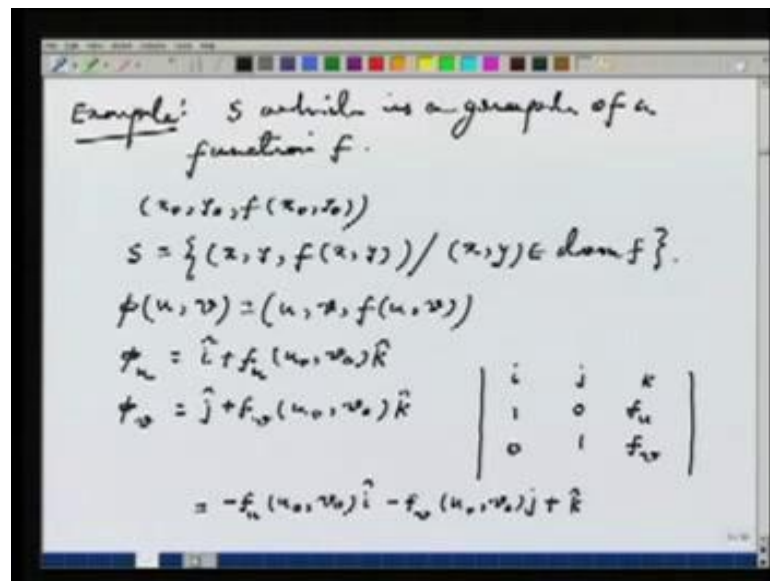 Example: S which is a graph of a
function f.
(x₀, y₀, f(x₀, y₀))
S = {(x, y, f(x, y)) / (x, y) ∈ dom f}.
φ(u, v) = (u, v, f(u, v))
φ_u = î + f_u(u₀, v₀) k̂
φ_v = ĵ + f_v(u₀, v₀) k̂
| i j k |
| 1 0 f_u |
| 0 1 f_v |
= -f_u(u₀, v₀) î - f_v(u₀, v₀) j + k̂